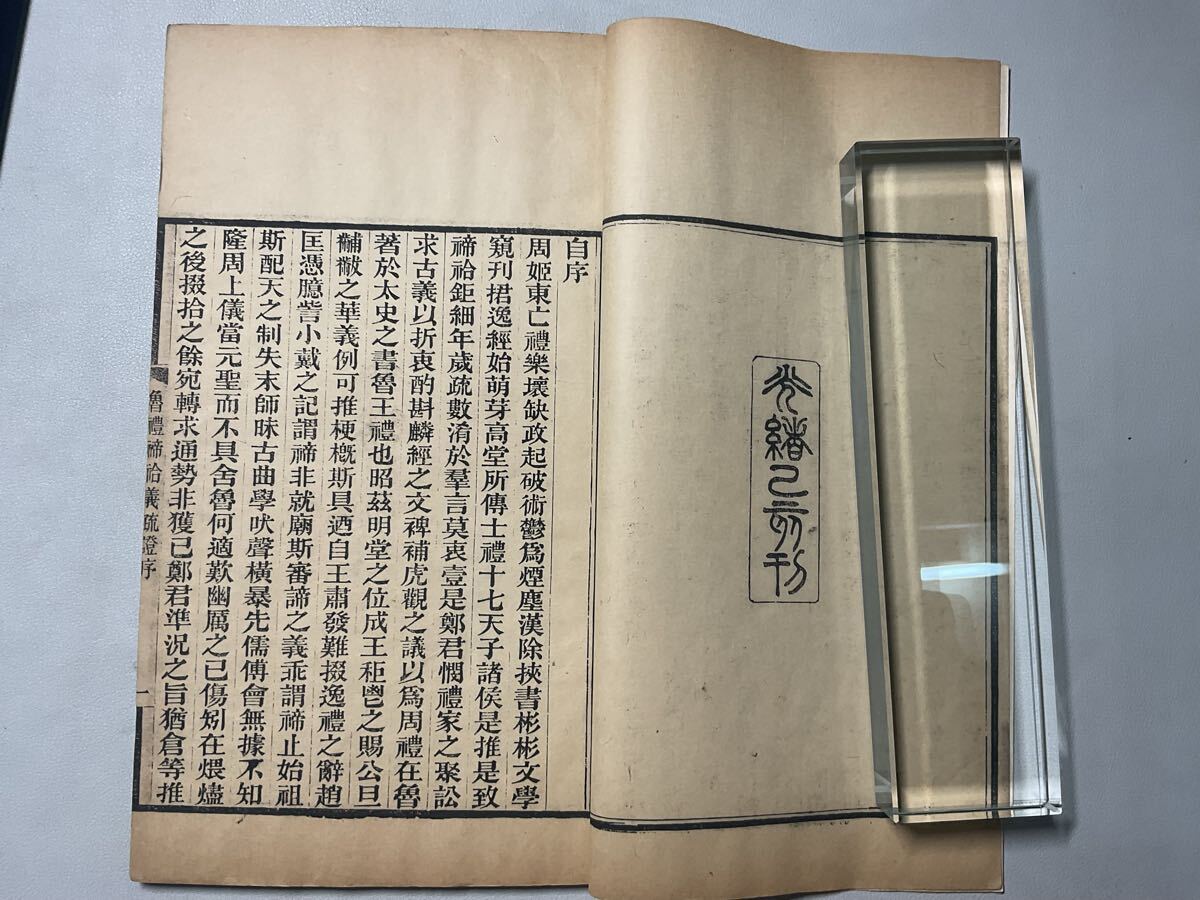 光緒己亥刊
自序
周姬東亡禮樂壞缺政起破術鬱爲煙塵漢除挾書彬彬文學
窺刊捃逸經始萌芽高堂所傳士禮十七天子諸侯是推是致
禘祫鉅細年歲疏數淆於羣言莫衷壹是鄭君憫禮家之聚訟
求古義以折衷酌斟麟經之文裨補虎觀之議以爲周禮在魯
著於太史之書魯王禮也昭茲明堂之位成王秬鬯之賜公旦
黼黻之華義例可推梗槪斯具迺自王肅發難掇逸禮之辭趙
匡憑臆訾小戴之記謂禘非就廟斯審諦之義乖謂禘止始祖
斯配天之制失末師昧古曲學吠聲橫暴先儒傅會無據不知
隆周上儀當元聖而不具舍魯何適歎幽厲之已傷矧在煨燼
之後掇拾之餘宛轉求通勢非獲已鄭君準況之旨猶倉等推
魯禮禘祫義疏證序
一